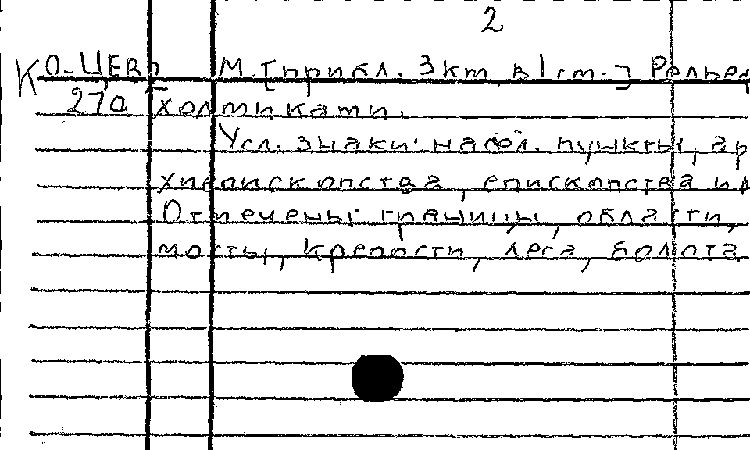 2
КО-ЦЕвр М. [прибл. 3км в 1 ст.] Рельеф
27а холмиками.
Усл. знаки: насел. пункты, ар
хиепископства, епископства и
Отмечены границы, области,
мосты, крепости, леса, болота